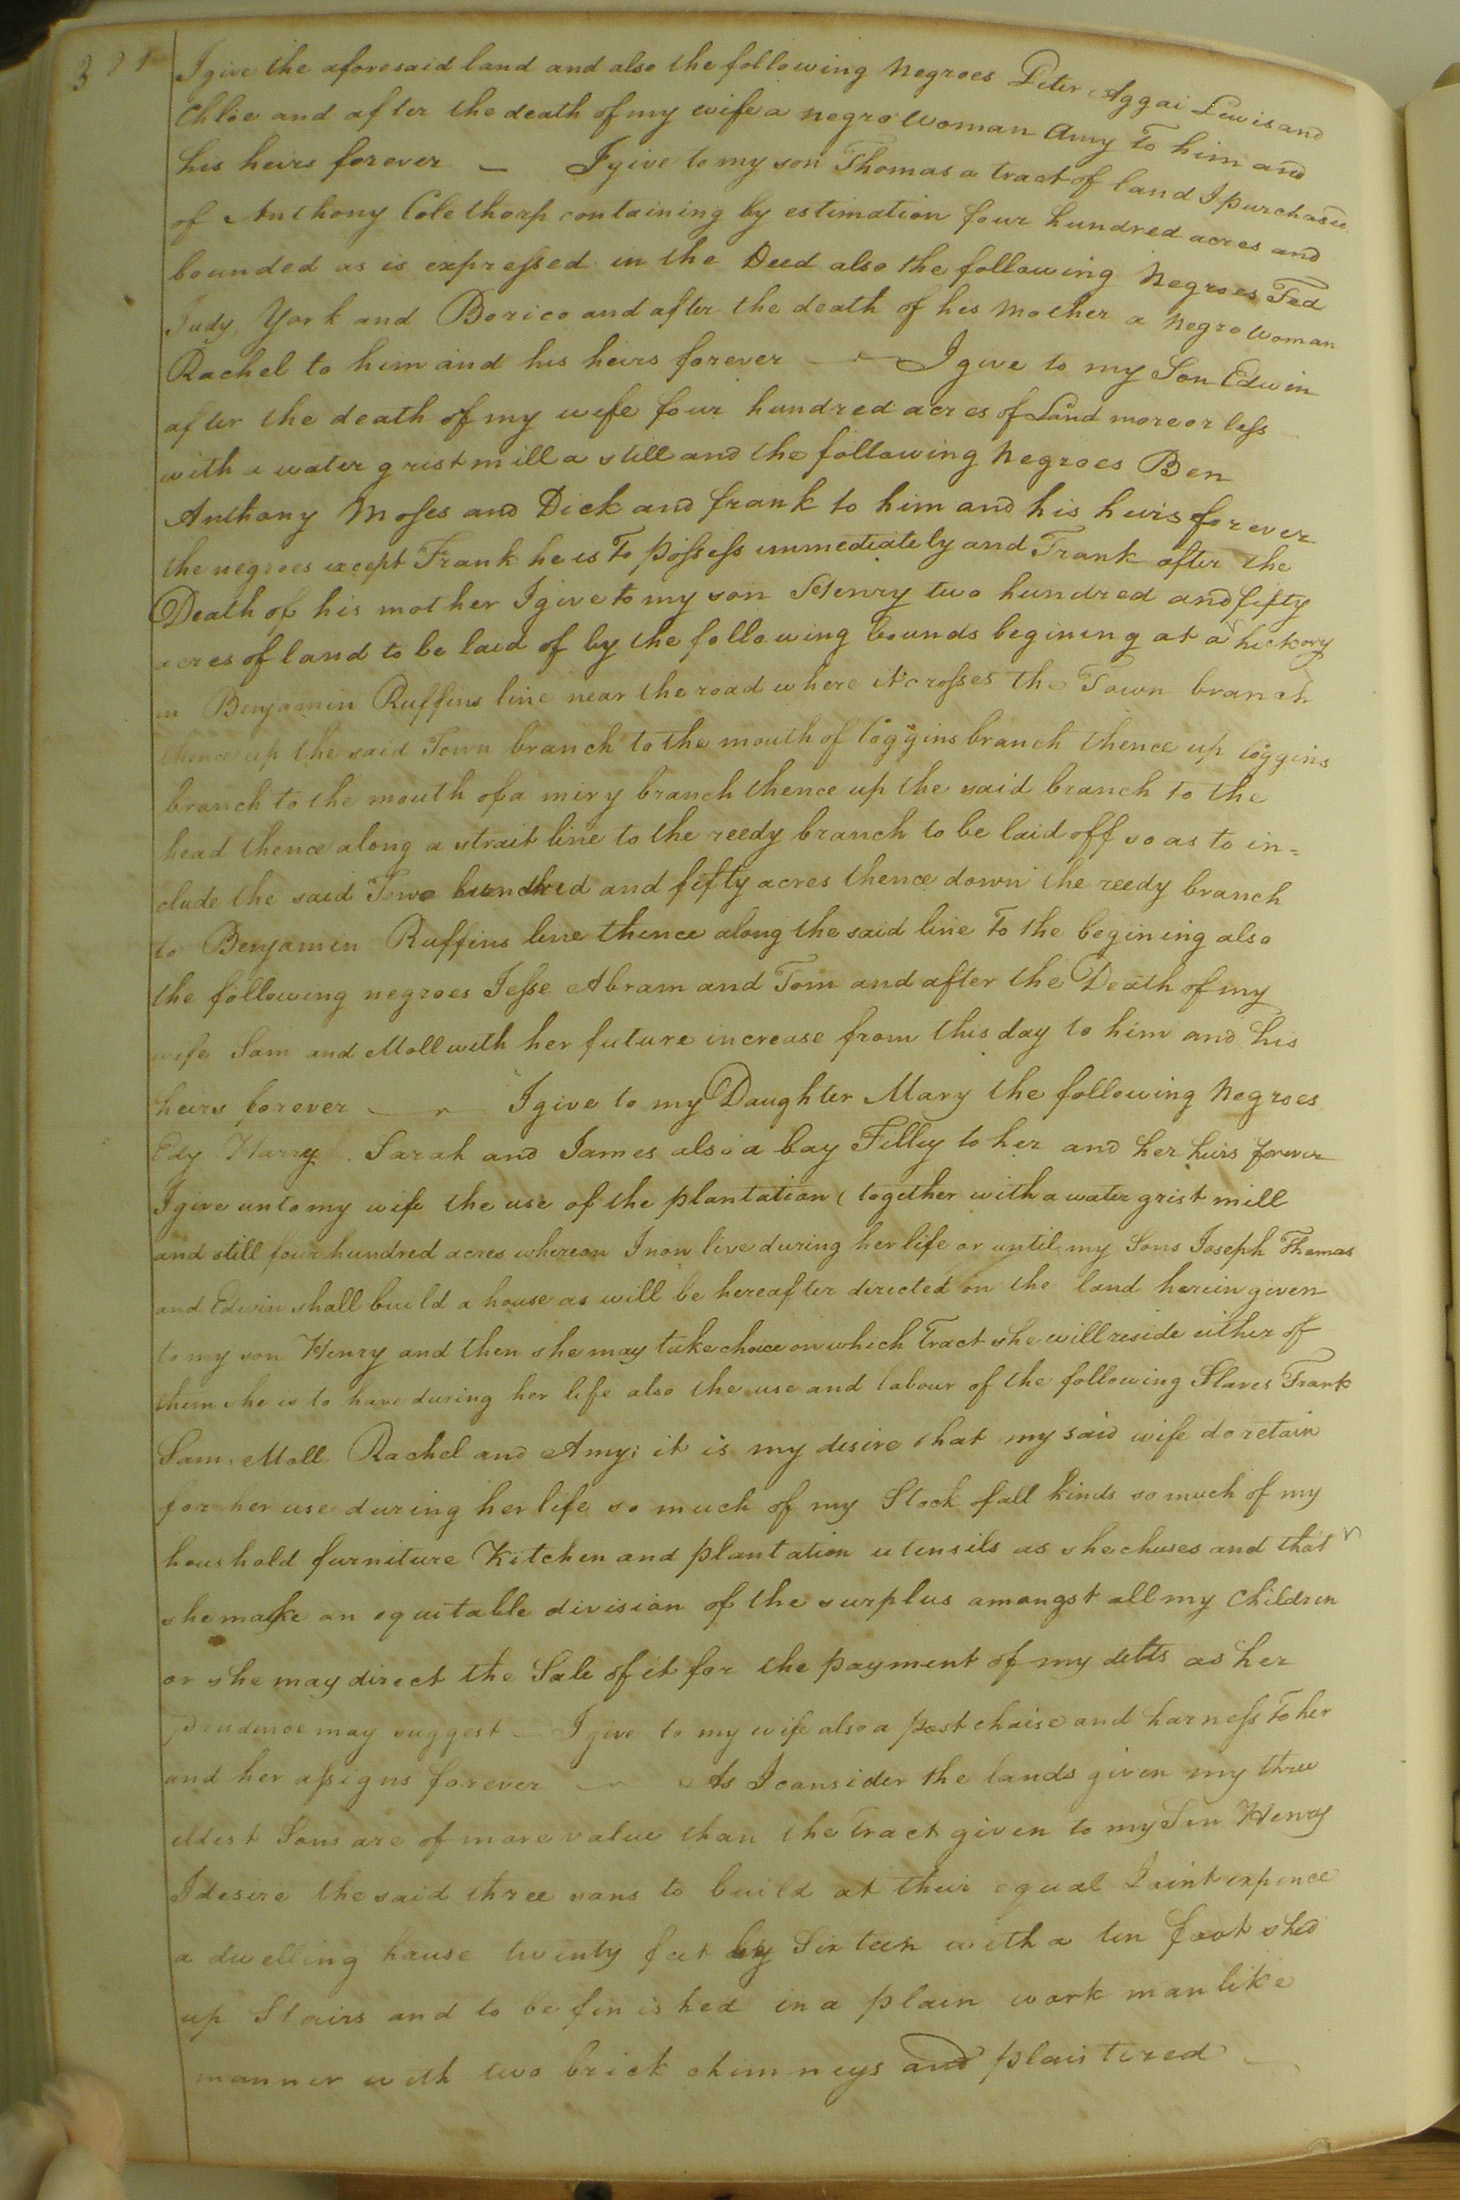 I give the aforesaid land and also the following Negroes Peter Aggai Lewis and
Chloe and after the death of my wife a negro woman Amy To him and
his heirs forever — I give to my son Thomas a tract of land I purchased
of Anthony Colethorp containing by estimation four hundred acres and
bounded as is expressed in the Deed also the following Negroes Ted
Judy York and Borico and after the death of his Mother a Negro woman
Rachel to him and his heirs forever — I give to my Son Edwin
after the death of my wife four hundred acres of Land more or less
with a water grist mill a still and the following Negroes Ben
Anthony Moses and Dick and frank to him and his heirs forever
the negroes except Frank he is To possess immediately and Frank after the
Death of his mother I give to my son Henry two hundred and fifty
acres of land to be laid of by the following bounds begining at a hickory
in Benjamin Ruffins line near the road where it crosses the Town branch
thence up the said Town branch to the mouth of Coggins branch thence up Coggins
branch to the mouth of a miry branch thence up the said branch to the
head thence along a strait line to the reedy branch to be laid off so as to in=
clude the said Two hundred and fifty acres thence down the reedy branch
to Benjamin Ruffins line thence along the said line To the begining also
the following negroes Jesse Abram and Tom and after the Death of my
wife Sam and Moll with her future increase from this day to him and his
heirs forever — I give to my Daughter Mary the following Negroes
Edy Harry Sarah and James also a bay Filley to her and her heirs forever
I give unto my wife the use of the plantation (together with a water grist mill
and still four hundred acres whereon I now live during her life or until my Sons Joseph Thomas
and Edwin shall build a house as will be hereafter directed on the land herein given
to my son Henry and then she may take choice on which Tract she will reside either of
them she is to have during her life also the use and labour of the following Slaves Frank
Sam Moll Rachel and Amy; it is my desire that my said wife do retain
for her use during her life so much of my Stock of all kinds so much of my
houshold furniture Kitchen and plantation utensils as she chuses and that
she make an equitable division of the surplus amongst all my Children
or she may direct the Sale of it for the payment of my debts as her
prudence may suggest — I give to my wife also a post chaise and harness To her
and her assigns forever — As I consider the lands given my three
eldest Sons are of more value than the Tract given to my Son Henry
I desire the said three sons to build at their equal Joint expence
a dwelling house twenty feet by Sixteen with a ten foot shed
up Stairs and to be finished in a plain work man like
manner with two brick chimneys and plaistered —